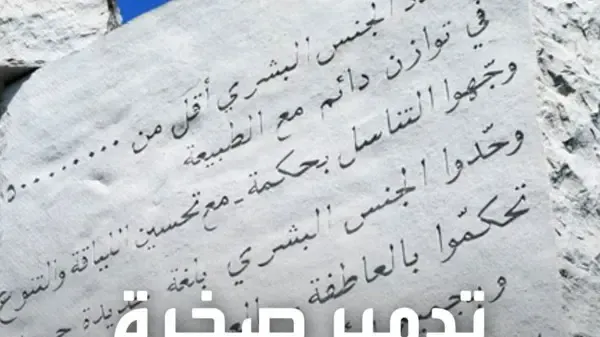 الجنس البشري أقل من ٥٠٠٠٠٠٠٠٠
في توازن دائم مع الطبيعة
وجّهوا التناسل بحكمة - مع تحسين اللياقة والتنوع
وحّدوا الجنس البشري بلغة جديدة
تحكمّوا بالعاطفة -
تدمير صخرية